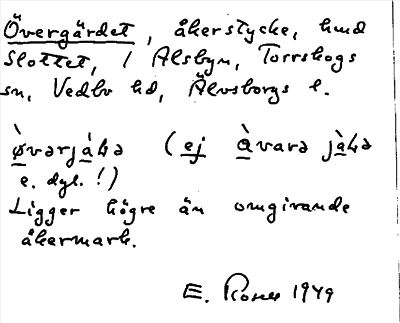 Övergärdet, åkerstycke, hmd
Slottet, i Alsbyn, Torrskogs
sn, Vedbo hd, Älvsborgs l.
ø̀vərjàɫə (ej àvarə jàɫə
e. dyl.!)
Ligger högre än omgivande
åkermark.
E. 1949